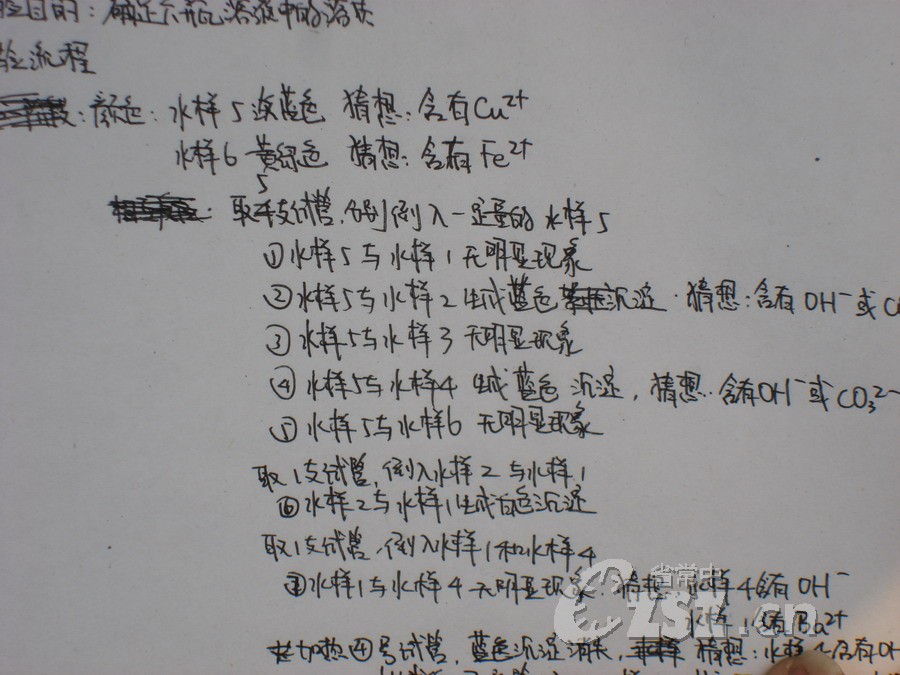 验目的：确定六瓶溶液中的溶质
验流程
：颜色：水样5淡蓝色 猜想：含有Cu²⁺
水样6黄绿色 猜想：含有Fe²⁺
5
取支试管，分别倒入一定量的水样5
①水样5与水样1无明显现象
②水样5与水样2生成蓝色沉淀．猜想：含有OH⁻或C
③水样5与水样3无明显现象
④水样5与水样4生成蓝色沉淀，猜想：含有OH⁻或CO₃²⁻
⑤水样5与水样6无明显现象
取1支试管，倒入水样2与水样1
⑥水样2与水样1生成白色沉淀
取1支试管，倒入水样1和水样4
水样1与水样4无明显现象 猜想 水样4含有OH⁻
水样1含有Ba²⁺
加热④号试管，蓝色沉淀消失，猜想：水样4含有OH
省常中
CZSZ.cn